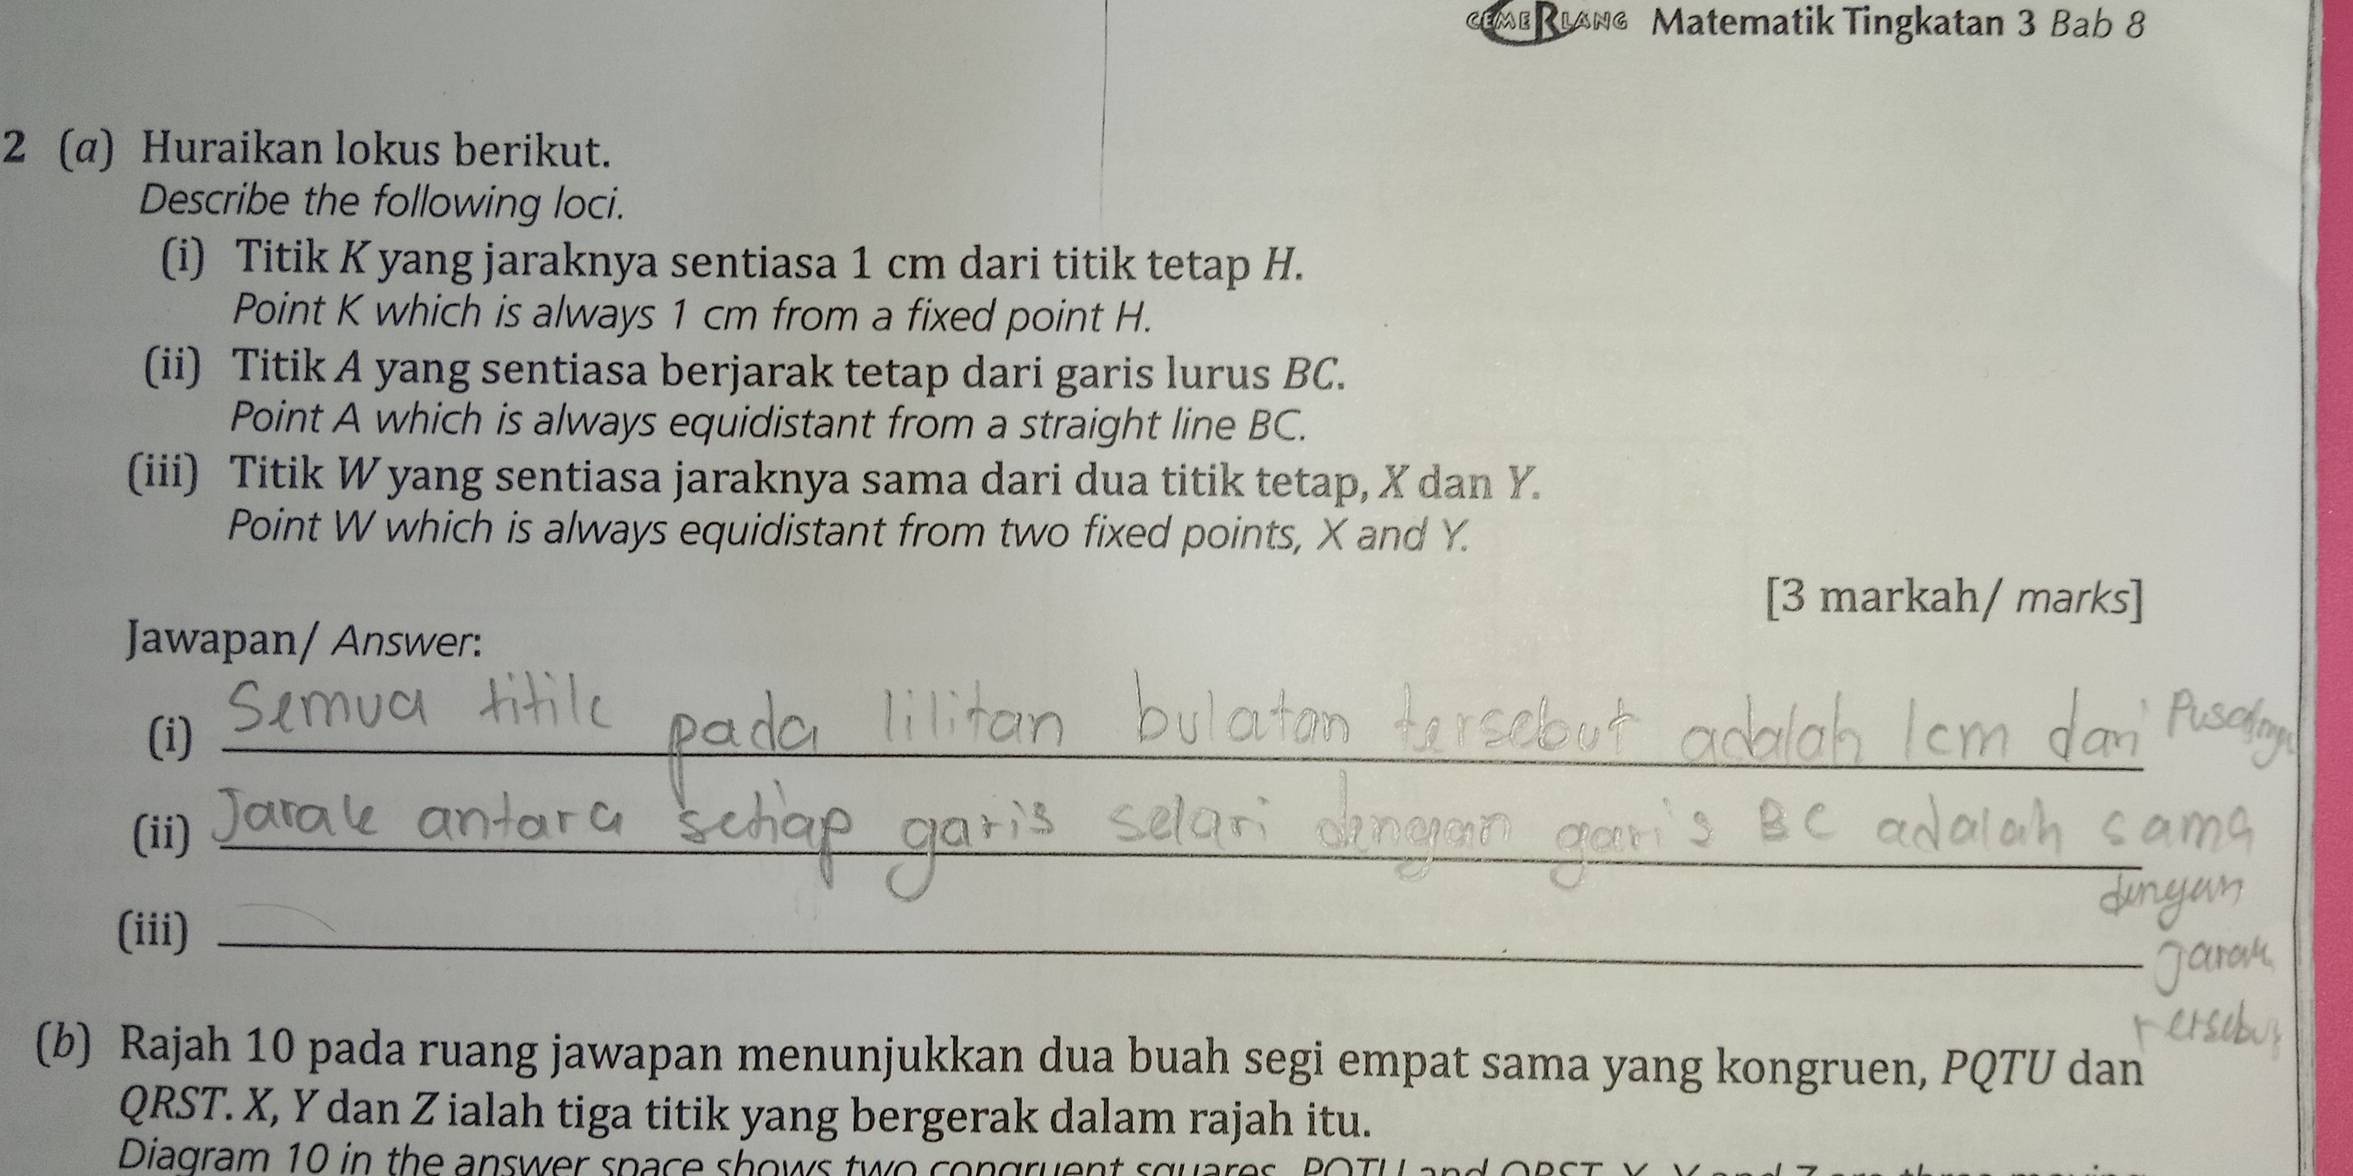 CEMERLANG Matematik Tingkatan 3 Bab 8
2 (a) Huraikan lokus berikut.
Describe the following loci.
(i) Titik K yang jaraknya sentiasa 1 cm dari titik tetap H.
Point K which is always 1 cm from a fixed point H.
(ii) Titik A yang sentiasa berjarak tetap dari garis lurus BC.
Point A which is always equidistant from a straight line BC.
(iii) Titik W yang sentiasa jaraknya sama dari dua titik tetap, X dan Y.
Point W which is always equidistant from two fixed points, X and Y.
[3 markah/ marks]
Jawapan/ Answer:
(i) Semua titik pada lilitan bulatan tersebut adalah 1cm dari Pusatnya
(ii) Jarak antara setiap garis selari dengan garis BC adalah sama
dengan
Jarak
tersebut
(iii)
(b) Rajah 10 pada ruang jawapan menunjukkan dua buah segi empat sama yang kongruen, PQTU dan
QRST. X, Y dan Z ialah tiga titik yang bergerak dalam rajah itu.
Diagram 10 in the answer space shows two congruent squares, PQTU and QRST. X, Y and Z